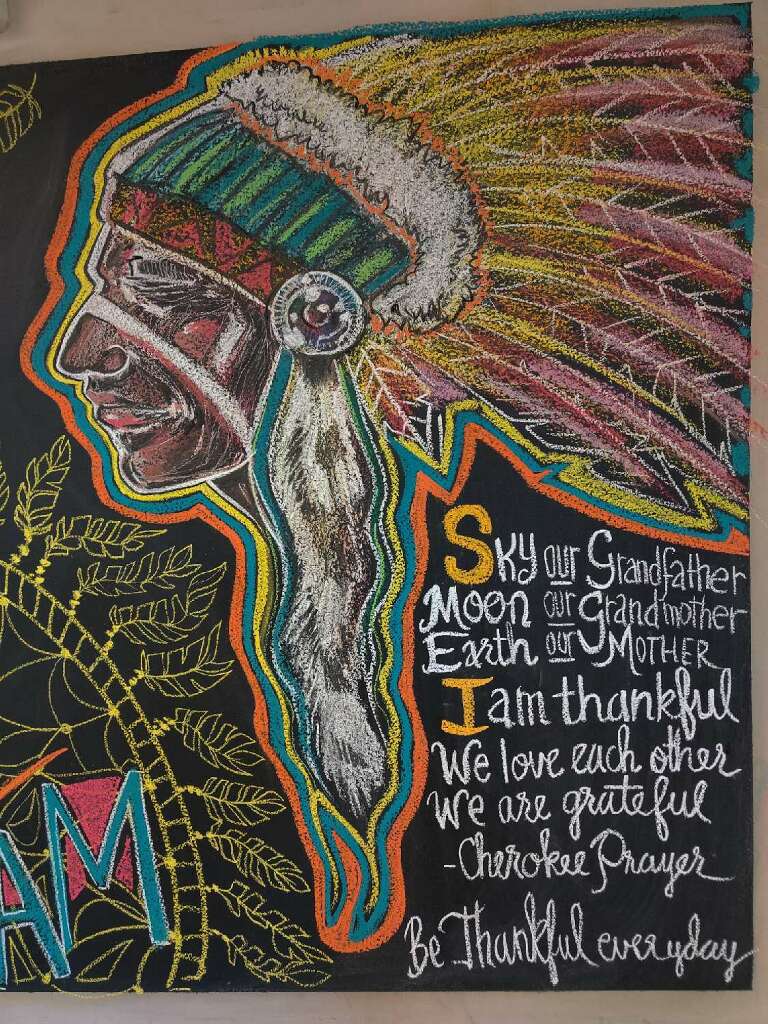 Sky our Grandfather
Moon our Grandmother
Earth our MOTHER
I am thankful
We love each other
We are grateful
-Cherokee Prayer
Be Thankful everyday
AM